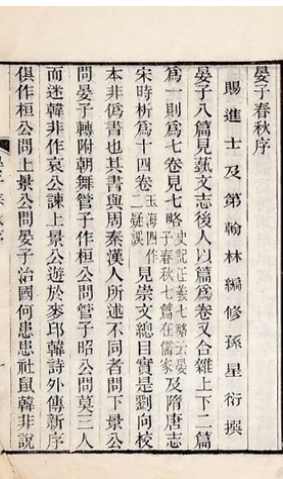 晏子春秋序
賜進士及第翰林編修孫星衍撰
晏子八篇見蓺文志後人以篇爲卷又合雜上下二篇
爲一則爲七卷見七略史記正義七略云晏子春秋七篇在儒家及隋唐志
宋時析爲十四卷玉海四作二疑誤見崇文總目實是劉向校
本非僞書也其書與周秦漢人所述不同者問下景公
問晏子轉附朝舞管子作桓公問管子昭公問莫三人
而迷韓非作哀公諫上景公遊於麥邱韓詩外傳新序
俱作桓公問上景公問晏子治國何患患社鼠韓非說